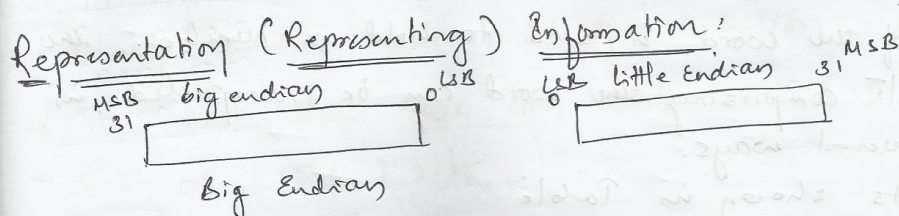 Representation (Representing) Information:
MSB big endian LSB LSB little Endian MSB
31 0 0 31
Big Endian